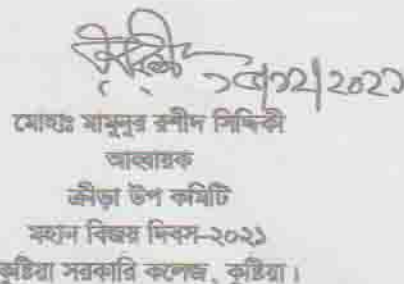 ১৫/১২/২০২১
মোহাঃ মামুনুর রশীদ সিদ্দিকী
আহ্বায়ক
ক্রীড়া উপ কমিটি
মহান বিজয় দিবস-২০২১
কুষ্টিয়া সরকারি কলেজ, কুষ্টিয়া।